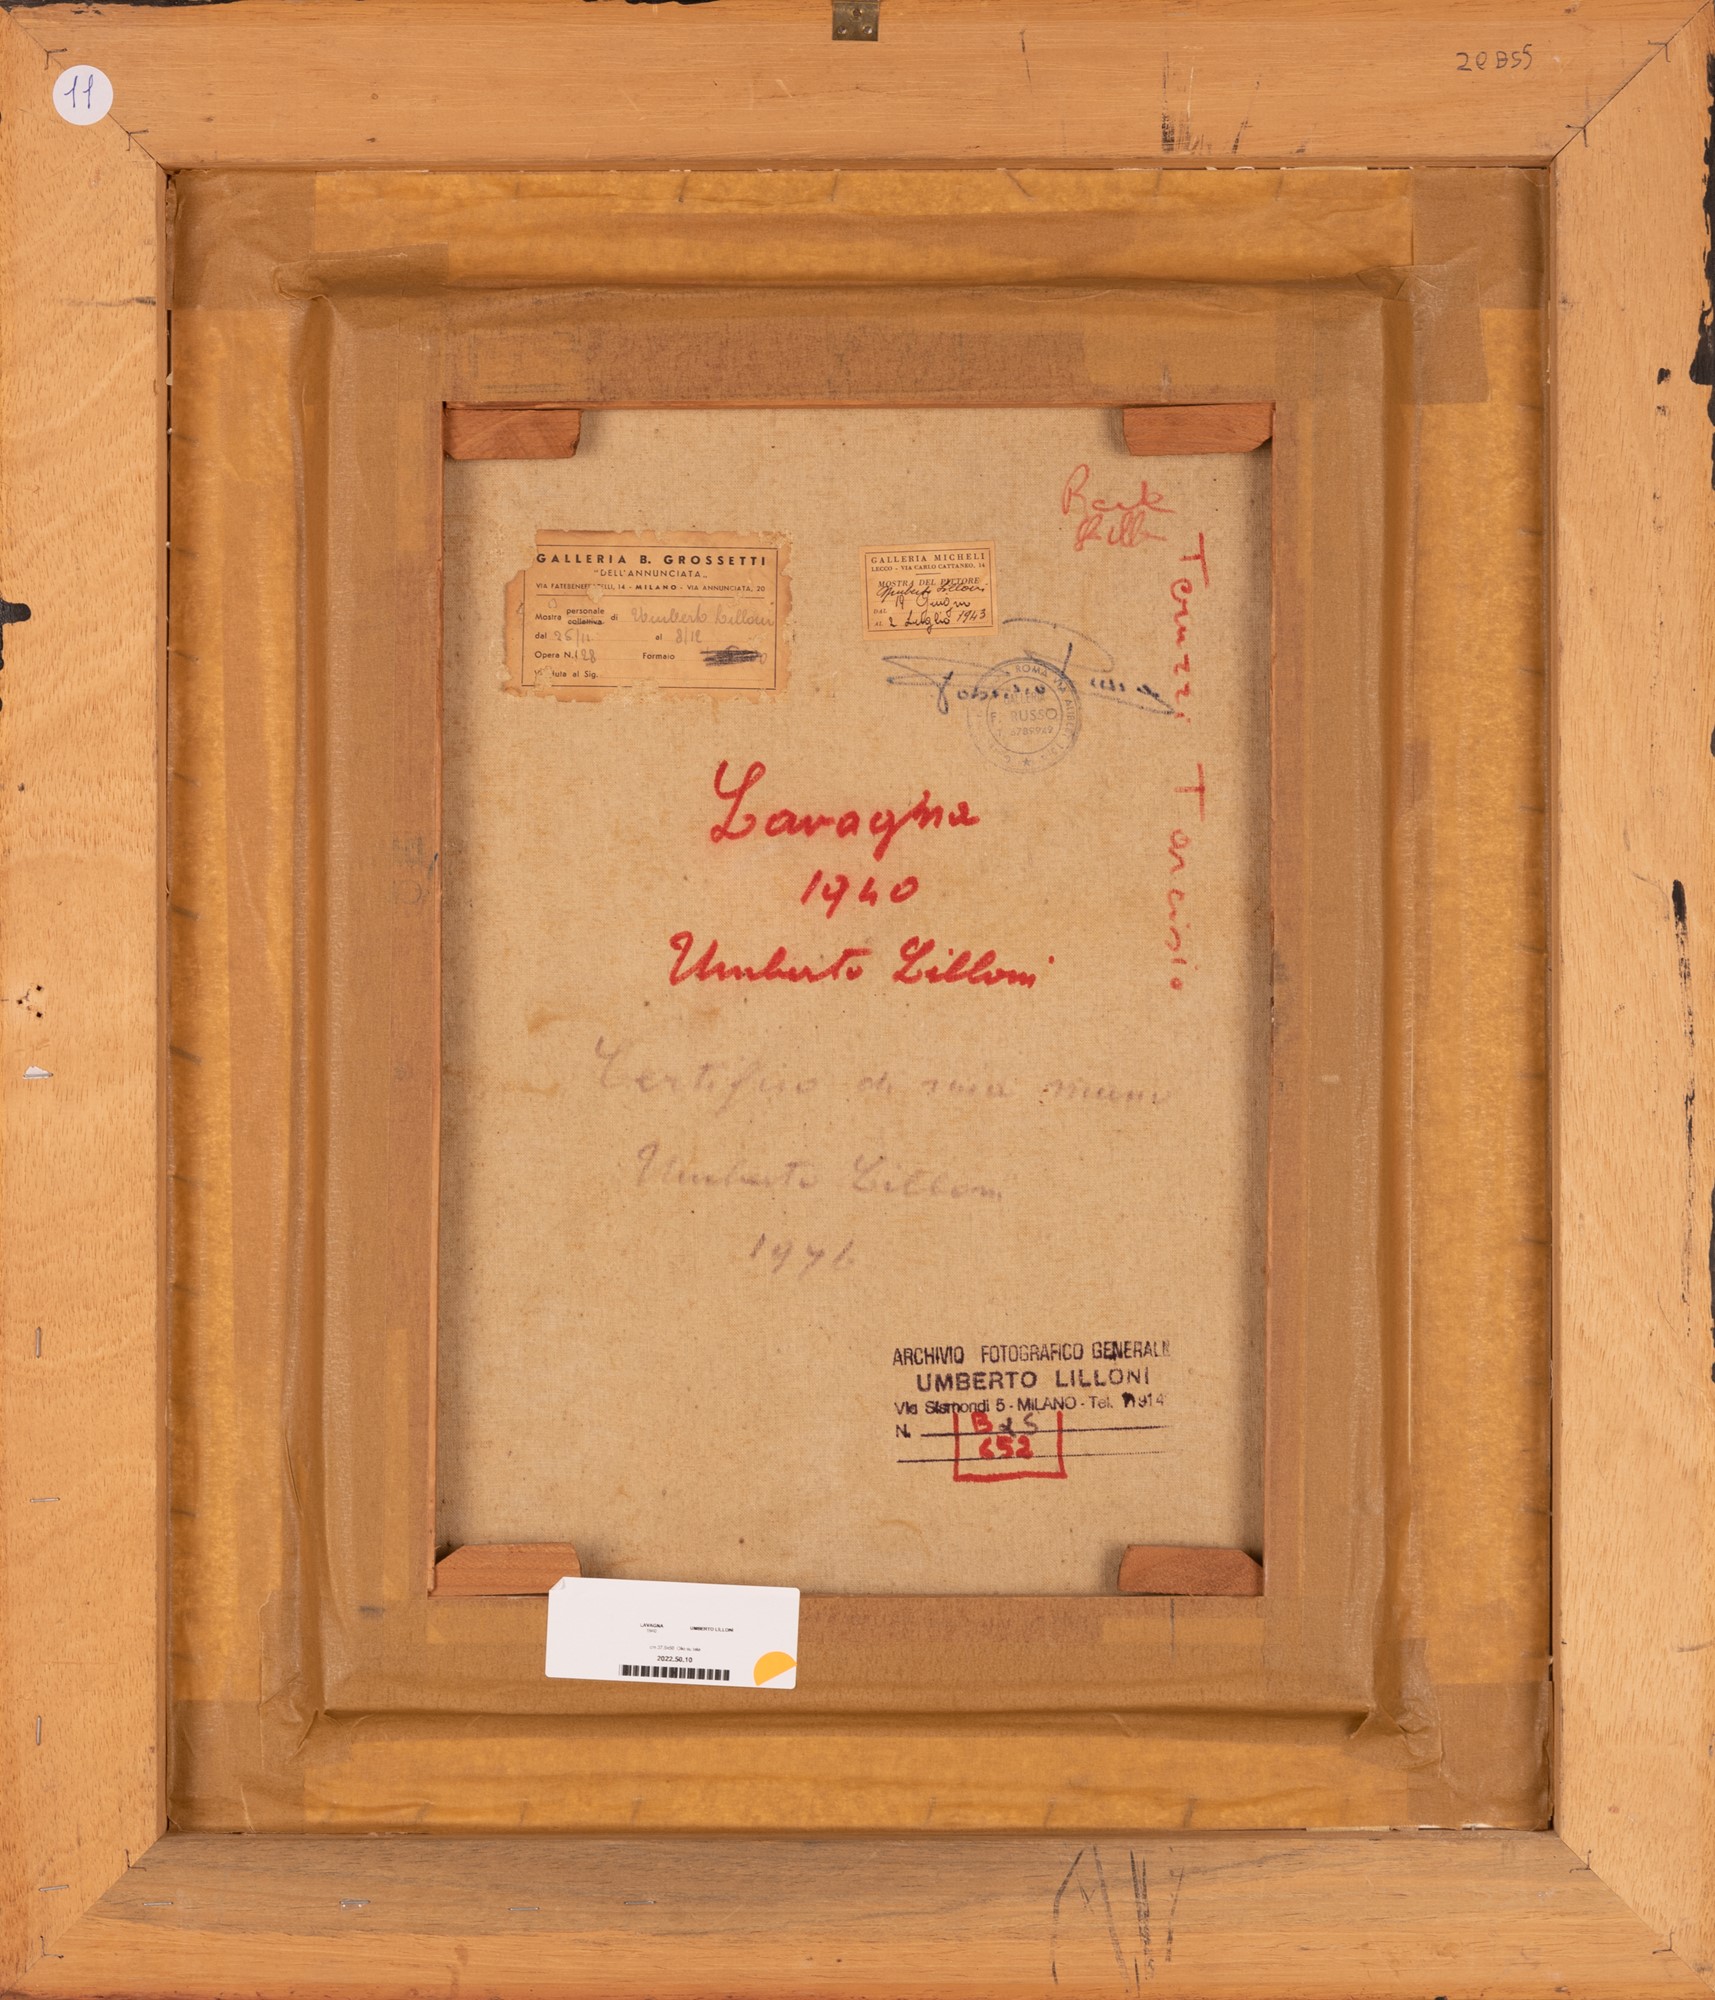 11
GALLERIA B. GROSSETTI
"DELL'ANNUNCIATA"
VIA FATEBENEFRATELLI, 14 - MILANO - VIA ANNUNCIATA, 20
Mostra personale collettiva di Umberto Lilloni
dal 26/11 al 8/12
Opera N. 128 Formato
al Sig.
GALLERIA MICHELI
LECCO - VIA CARLO CATTANEO, 14
MOSTRA DEL PITTORE
Umberto Lilloni
DAL 19 Giugno
AL 2 Luglio 1943
ROMA VIA ALIBERT
F. RUSSO
Teruzzi Tarcisio
Lavagna
1940
Umberto Lilloni
Certifico di mia mano
Umberto Lilloni
ARCHIVIO FOTOGRAFICO GENERALE
UMBERTO LILLONI
Via Sismondi 5 - MILANO - Tel.
N.
652
LAVAGNA UMBERTO LILLONI
1940
2022.50.10